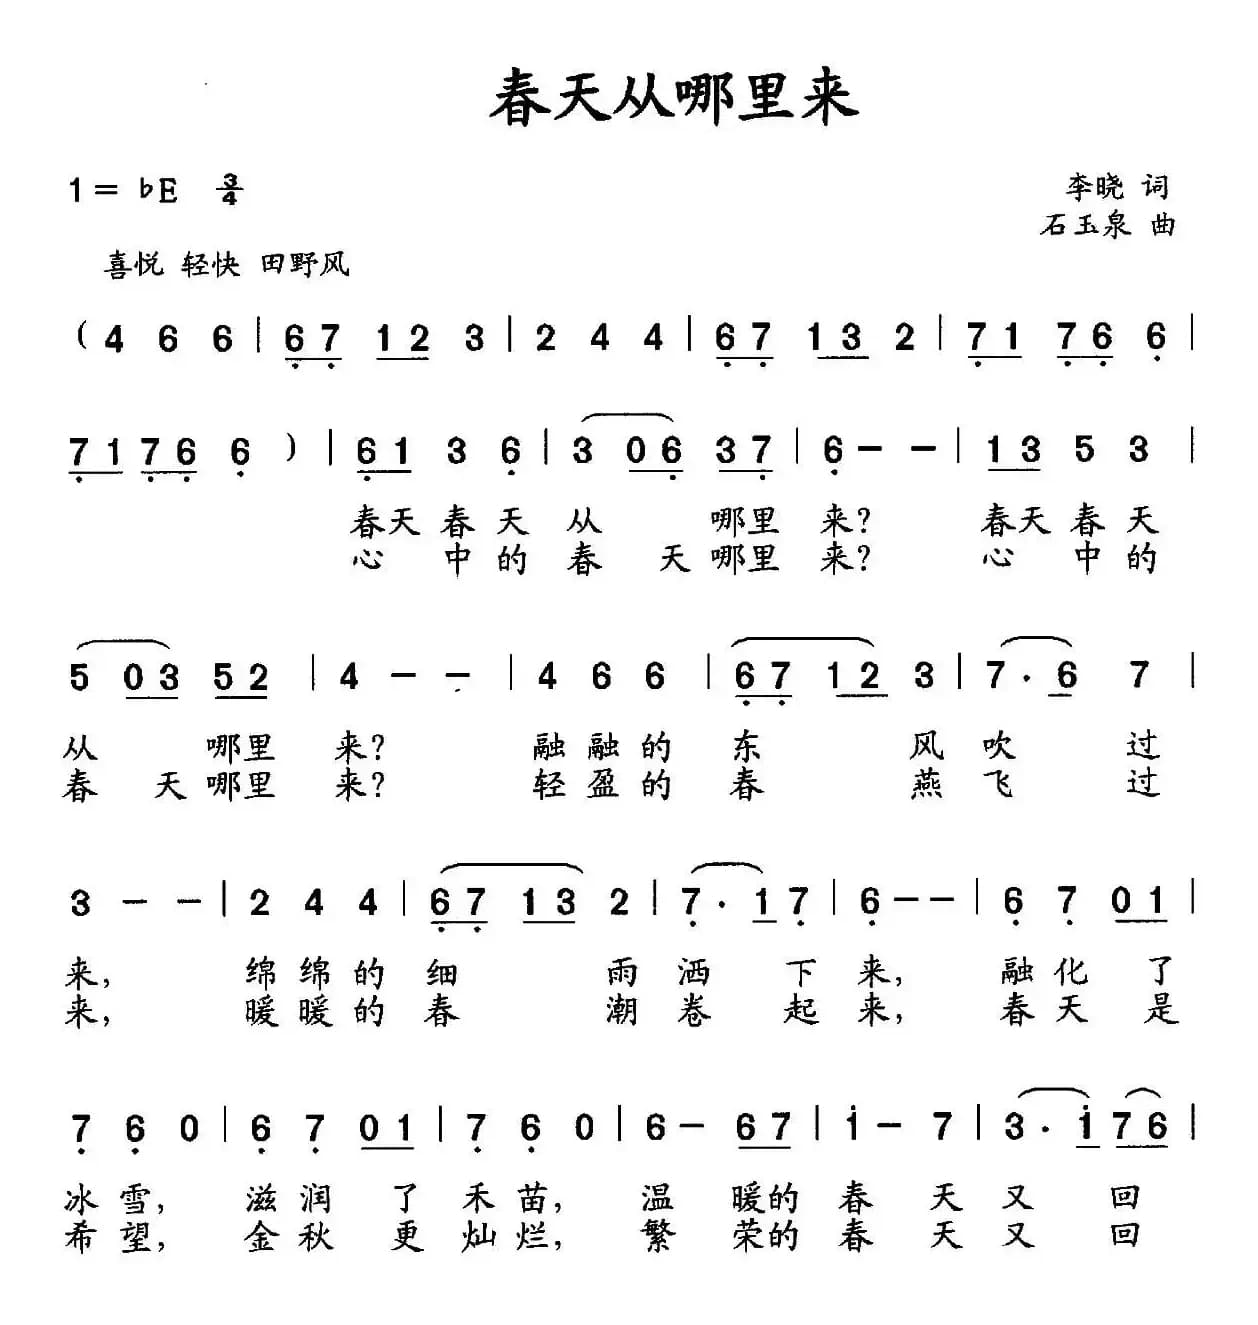 春天从哪里来
1= ♭E 3/4
李晓 词
石玉泉 曲
喜悦 轻快 田野风
( 4 6 6 | 6 7 1 2 3 | 2 4 4 | 6 7 1 3 2 | 7 1 7 6 6 |
7 1 7 6 6 ) | 6 1 3 6 | 3 0 6 3 7 | 6 - - | 1 3 5 3 |
春天春天从 哪里来? 春天春天
心中的春天哪里来? 心中的
5 0 3 5 2 | 4 - - | 4 6 6 | 6 7 1 2 3 | 7 · 6 7 |
从 哪里来? 融融的东 风吹过
春天哪里来? 轻盈的春 燕飞过
3 - - | 2 4 4 | 6 7 1 3 2 | 7 · 1 7 | 6 - - | 6 7 0 1 |
来, 绵绵的细 雨洒下来, 融化了
来, 暖暖的春 潮卷起来, 春天是
7 6 0 | 6 7 0 1 | 7 6 0 | 6 - 6 7 | i - 7 | 3 · i 7 6 |
冰雪, 滋润了禾苗, 温暖的春天又回
希望, 金秋更灿烂, 繁荣的春天又回